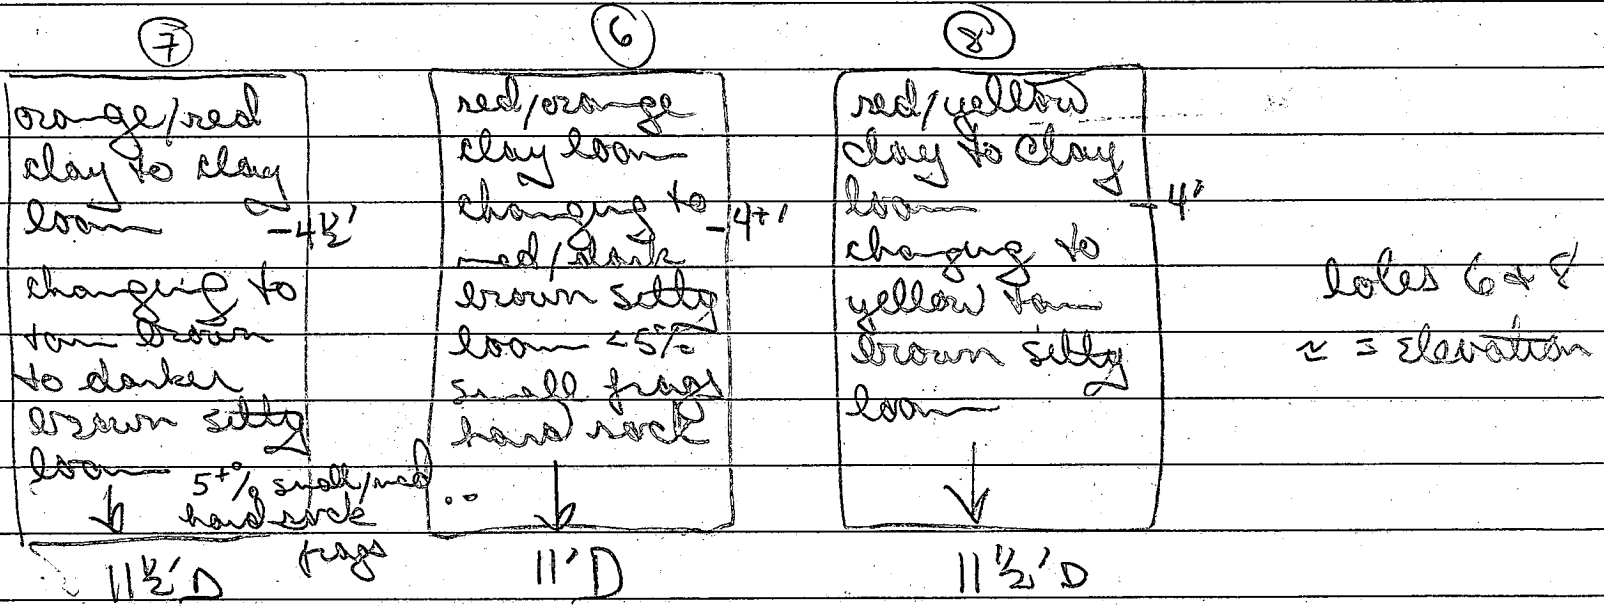 7
orange/red
clay to clay
loam -4½'
changing to
tan brown
to darker
brown silty
loam 5+% small/med
hard rock
frags
11½'D
6
red/orange
clay loam
changing to -4+'
med/dark
brown silty
loam <5%
small frags
hard rock
11'D
8
red/yellow
clay to clay
loam -4'
changing to
yellow tan
brown silty
loam
11½'D
holes 6 & 8
≈ = elevation